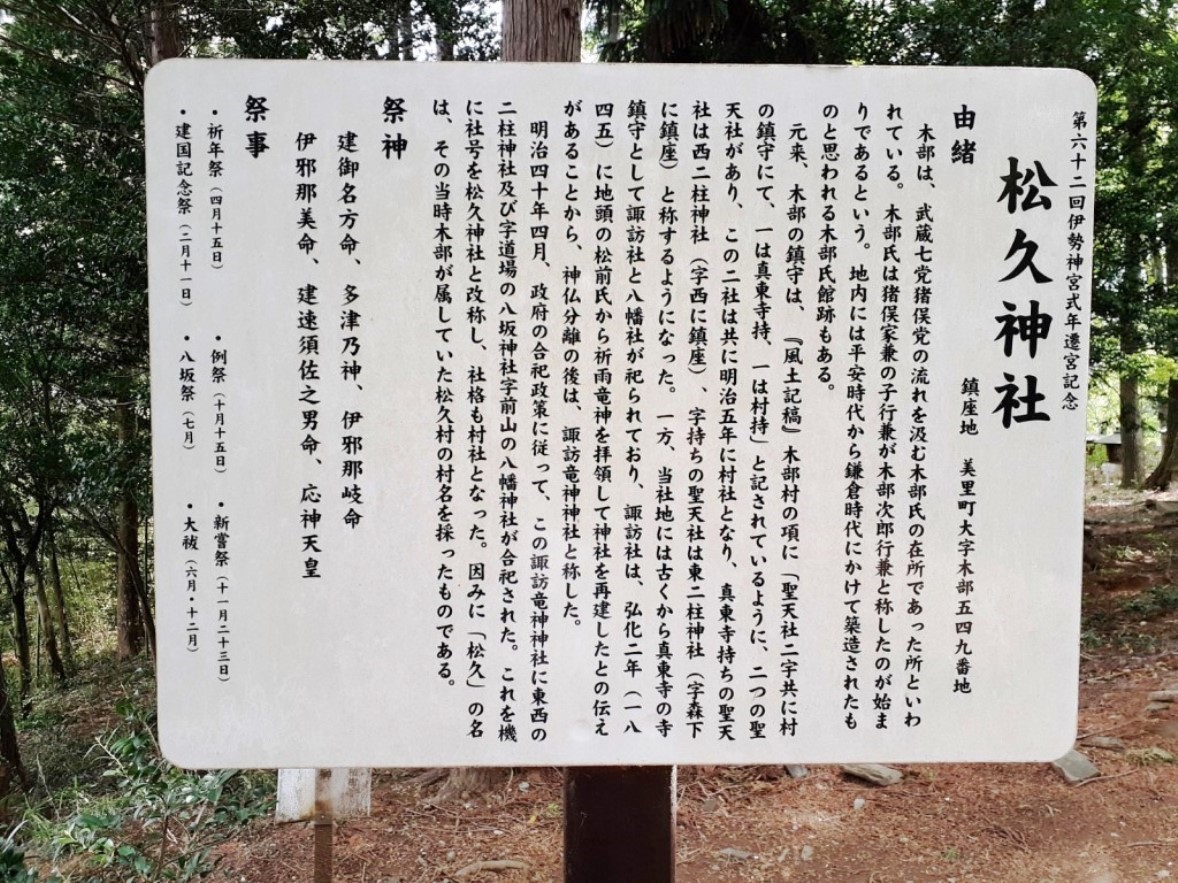 第六十二回伊勢神宮式年遷宮記念
松久神社
鎮座地　美里町大字木部五四九番地
由緒
木部は、武蔵七党猪俣党の流れを汲む木部氏の在所であった所といわ
れている。木部氏は猪俣家兼の子行兼が木部次郎行兼と称したのが始ま
りであるという。地内には平安時代から鎌倉時代にかけて築造されたも
のと思われる木部氏館跡もある。
元来、木部の鎮守は、『風土記稿』木部村の項に「聖天社二宇共に村
の鎮守にて、一は真東寺持、一は村持」と記されているように、二つの聖
天社があり、この二社は共に明治五年に村社となり、真東寺持ちの聖天
社は西二柱神社（字西に鎮座）、字持ちの聖天社は東二柱神社（字森下
に鎮座）と称するようになった。一方、当社地には古くから真東寺の寺
鎮守として諏訪社と八幡社が祀られており、諏訪社は、弘化二年（一八
四五）に地頭の松前氏から祈雨竜神を拝領して神社を再建したとの伝え
があることから、神仏分離の後は、諏訪竜神神社と称した。
明治四十年四月、政府の合祀政策に従って、この諏訪竜神神社に東西の
二柱神社及び字道場の八坂神社字前山の八幡神社が合祀された。これを機
に社号を松久神社と改称し、社格も村社となった。因みに「松久」の名
は、その当時木部が属していた松久村の村名を採ったものである。
祭神
建御名方命、多津乃神、伊邪那岐命
伊邪那美命、建速須佐之男命、応神天皇
祭事
・祈年祭（四月十五日）　・例祭（十月十五日）　・新嘗祭（十一月二十三日）
・建国記念祭（二月十一日）　・八坂祭（七月）　・大祓（六月・十二月）